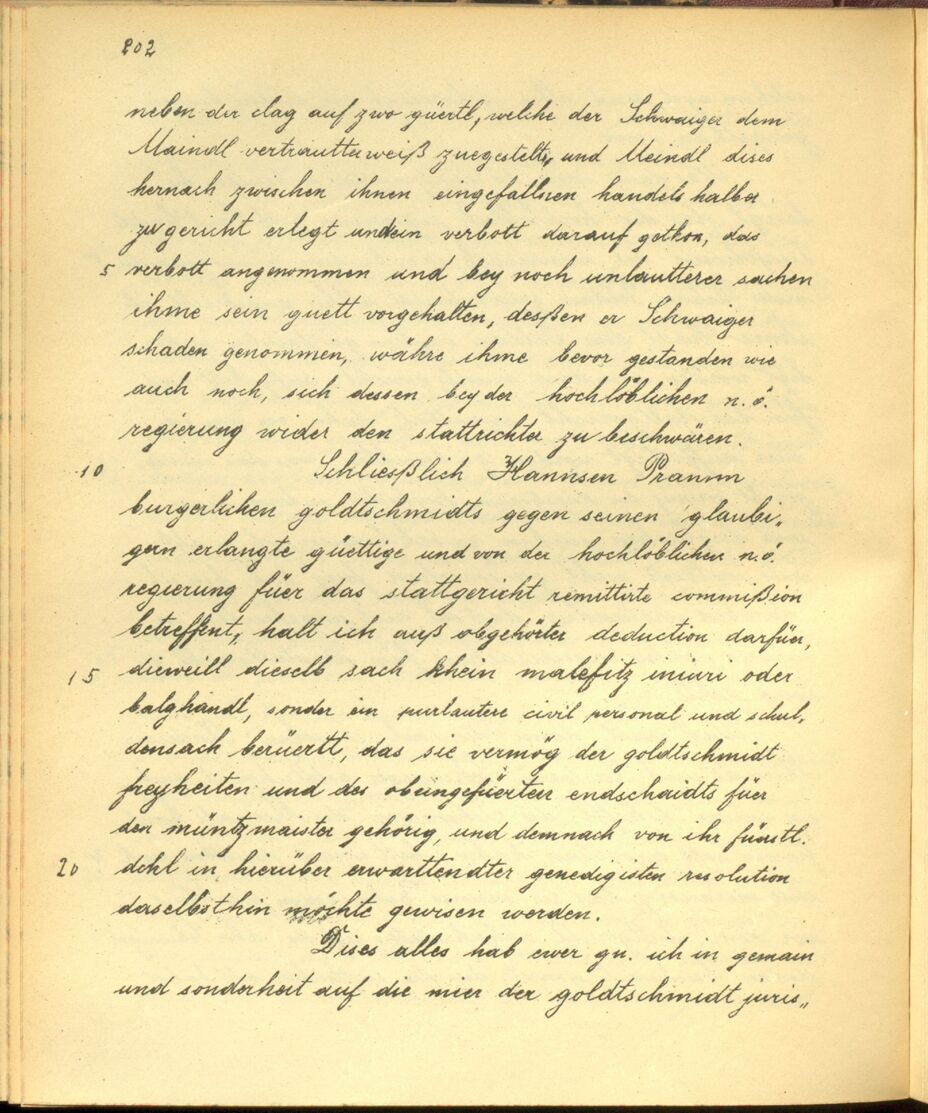 202
neben der clag auf zwo güertl, welche der Schwaiger dem
Maindl vertrautterweiß zuegestelts, und Meindl dises
hernach zwischen ihnen eingefallnen handels halber
zu gericht erlegt und ein verbott darauf gethon, das
5 verbott angenommen und bey noch unlautterer sachen
ihme sein guett vorgehalten, desßen er Schwaiger
schaden genommen, währe ihme bevor gestanden wie
auch noch, sich dessen bey der hochlöblichen n.ö.
regierung wider den stattrichter zu beschwären.
10 Schliesßlich Hannsen Pramm
burgerlichen goldtschmidts gegen seinen glaubi„
gern erlangte güettige und von der hochlöblichen n.ö.
regierung füer das stattgericht remittirte commißion
betreffent, halt ich auß obgehörter deduction darfüer,
15 dieweill dieselb sach khein malefitz iniuri oder
balghandt, sonder ein purlautere civil personal und schul„
densach berüertt, das sie vermög der goldtschmidt
freyheiten und des obeingefüerten endschaidts füer
den müntzmaister gehörig, und demnach von ihr fürstl.
20 dchl in hierüber erwarttendter genedigisten resolution
daselbsthin möchte gewisen werden.
Dises alles hab ewer gn. ich in gemain
und sonderheit auf die mier der goldtschmidt juris„